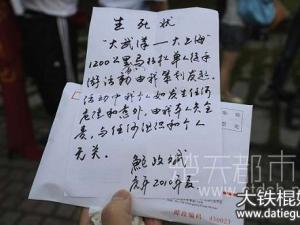 生死状
“大武汉——大上海”
1200公里马拉松单人徒手
游活动由我策划发起。
活动中我个人如发生任何
危险和意外,由我本人负全
责,与任何组织和个人
无关。
鲍政斌
庚寅2010年夏
楚天都市
ctdsb.
大铁棍娱
www.datiegu
邮政编码 450023